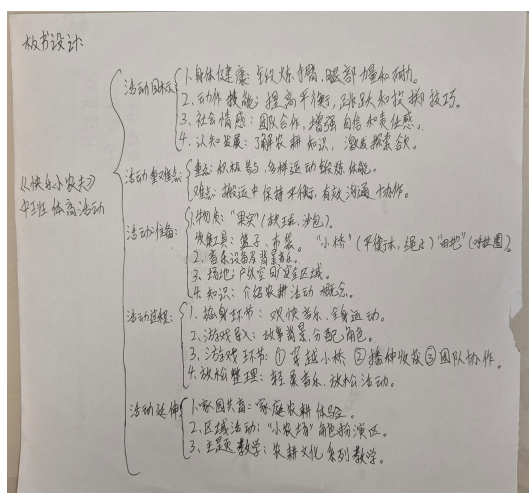 板书设计:
《快乐小农夫》
中班体育活动
活动目标:
1.身体健康:锻炼手臂,腿部力量和耐力。
2.动作技能:提高平衡,跳跃和投掷技巧。
3.社会情感:团队合作,增强自信和责任感。
4.认知发展:了解农耕知识,激发探索欲。
活动重难点:
重点:积极参与,多样运动锻炼体能。
难点:搬运中保持平衡,有效沟通协作。
活动准备:
1.物质:“果实”(沙包)。
工具:篮子、布袋。“小桥”(平衡木,绳子)“田地”(呼啦圈)
2.音乐设备及背景音乐。
3.场地:户外空间,区域。
4.知识:介绍农耕活动概念。
活动过程:
1.热身环节:欢快音乐,全身运动。
2.游戏导入:故事背景,分配角色。
3.游戏环节:①穿越小桥②播种收获③团队协作。
4.放松整理:轻柔音乐,放松活动。
活动延伸
1.家园共育:家庭农耕体验。
2.区域活动:“小农场”角色扮演区。
3.主题教学:农耕文化系列教学。